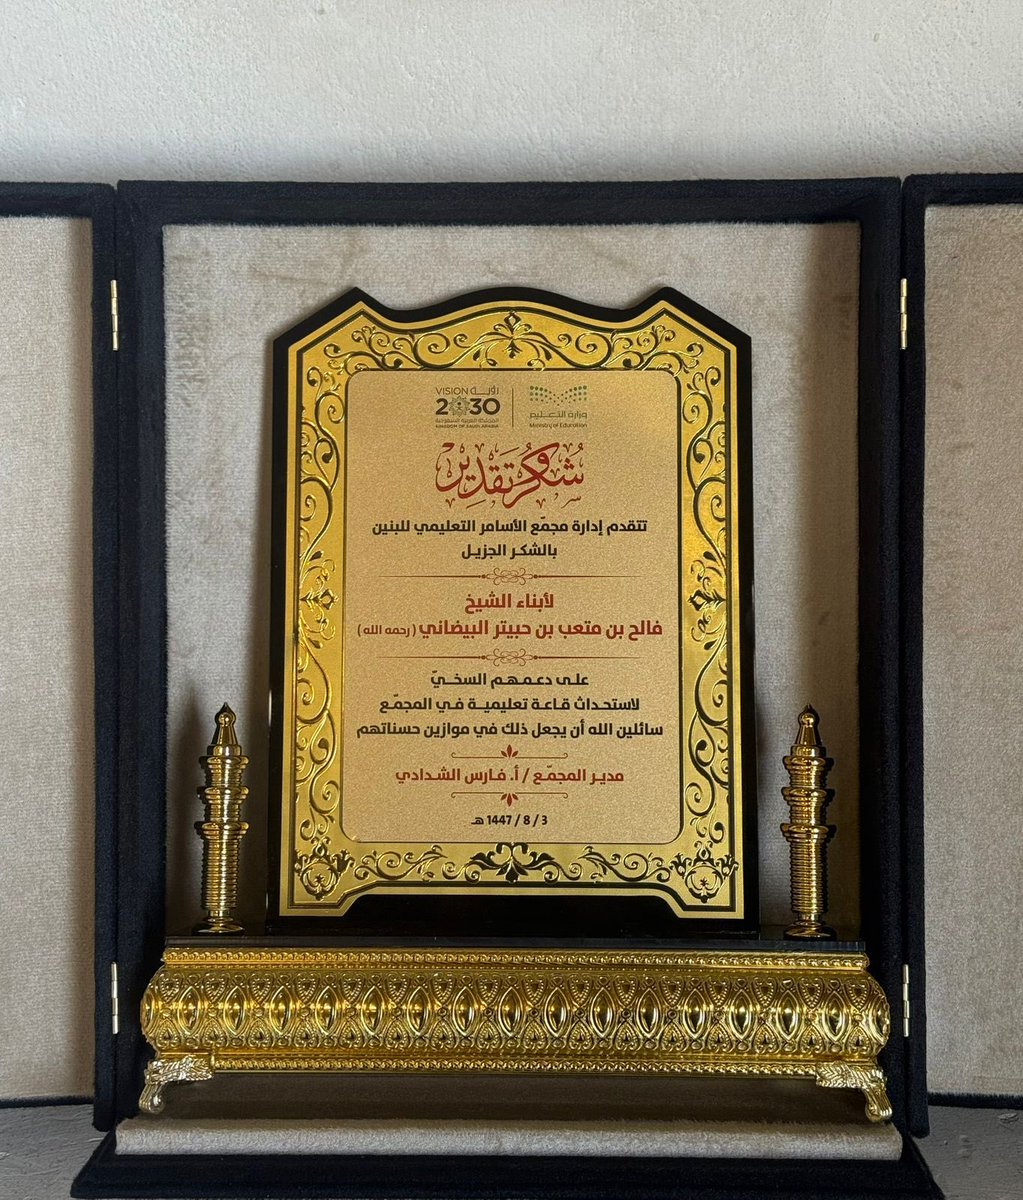 VISION رؤيــة
2030
المملكة العربية السعودية
KINGDOM OF SAUDI ARABIA
وزارة التعـليم
Ministry of Education
شكر وتقدير
تتقدم إدارة مجمّع الأسامر التعليمي للبنين
بالشكر الجزيل
لأبناء الشيخ
فالح بن متعب بن حبيتر البيضاني ( رحمه الله )
على دعمهم السخيّ
لاستحداث قاعة تعليمية في المجمّع
سائلين الله أن يجعل ذلك في موازين حسناتهم
مدير المجمّع / أ. فارس الشدادي
3 / 8 / 1447 هـ